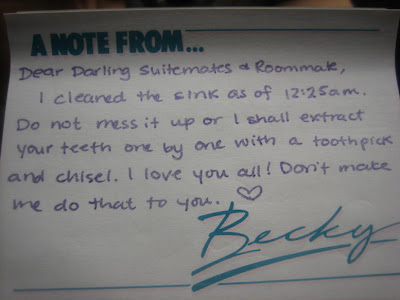 A NOTE FROM...
Dear Darling Suitemates & Roommate,
I cleaned the sink as of 12:25am.
Do not mess it up or I shall extract
your teeth one by one with a toothpick
and chisel. I love you all! Don't make
me do that to you. ♡
Becky